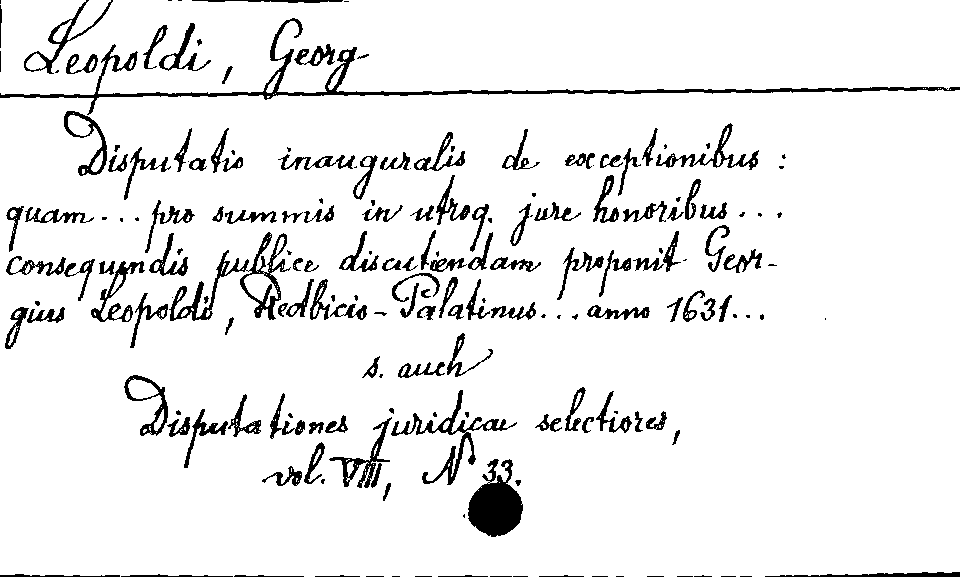 Leopoldi, Georg
Disputatio inauguralis de exceptionibus:
quam... pro summis in utroq. jure honoribus...
consequendis publice discutiendam proponit Geor-
gius Leopoldi, Redbicio-Palatinus... anno 1631...
s. auch
Disputationes juridicae selectiores,
vol. VIII, N 33.